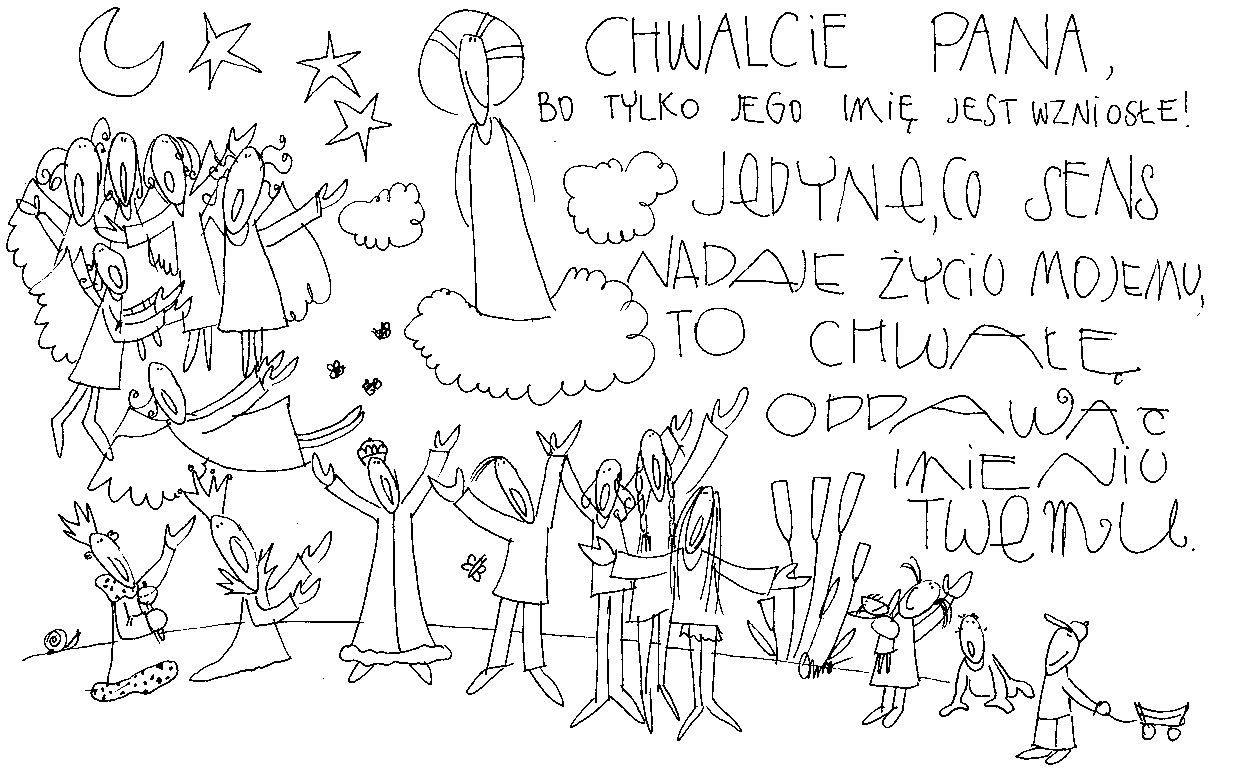 CHWALCIE PANA,
BO TYLKO JEGO IMIĘ JEST WZNIOSŁE!
JEDYNE, CO SENS
NADAJE ŻYCIU MOJEMU,
TO CHWAŁĘ
ODDAWAĆ
IMIENIU
TWEMU.